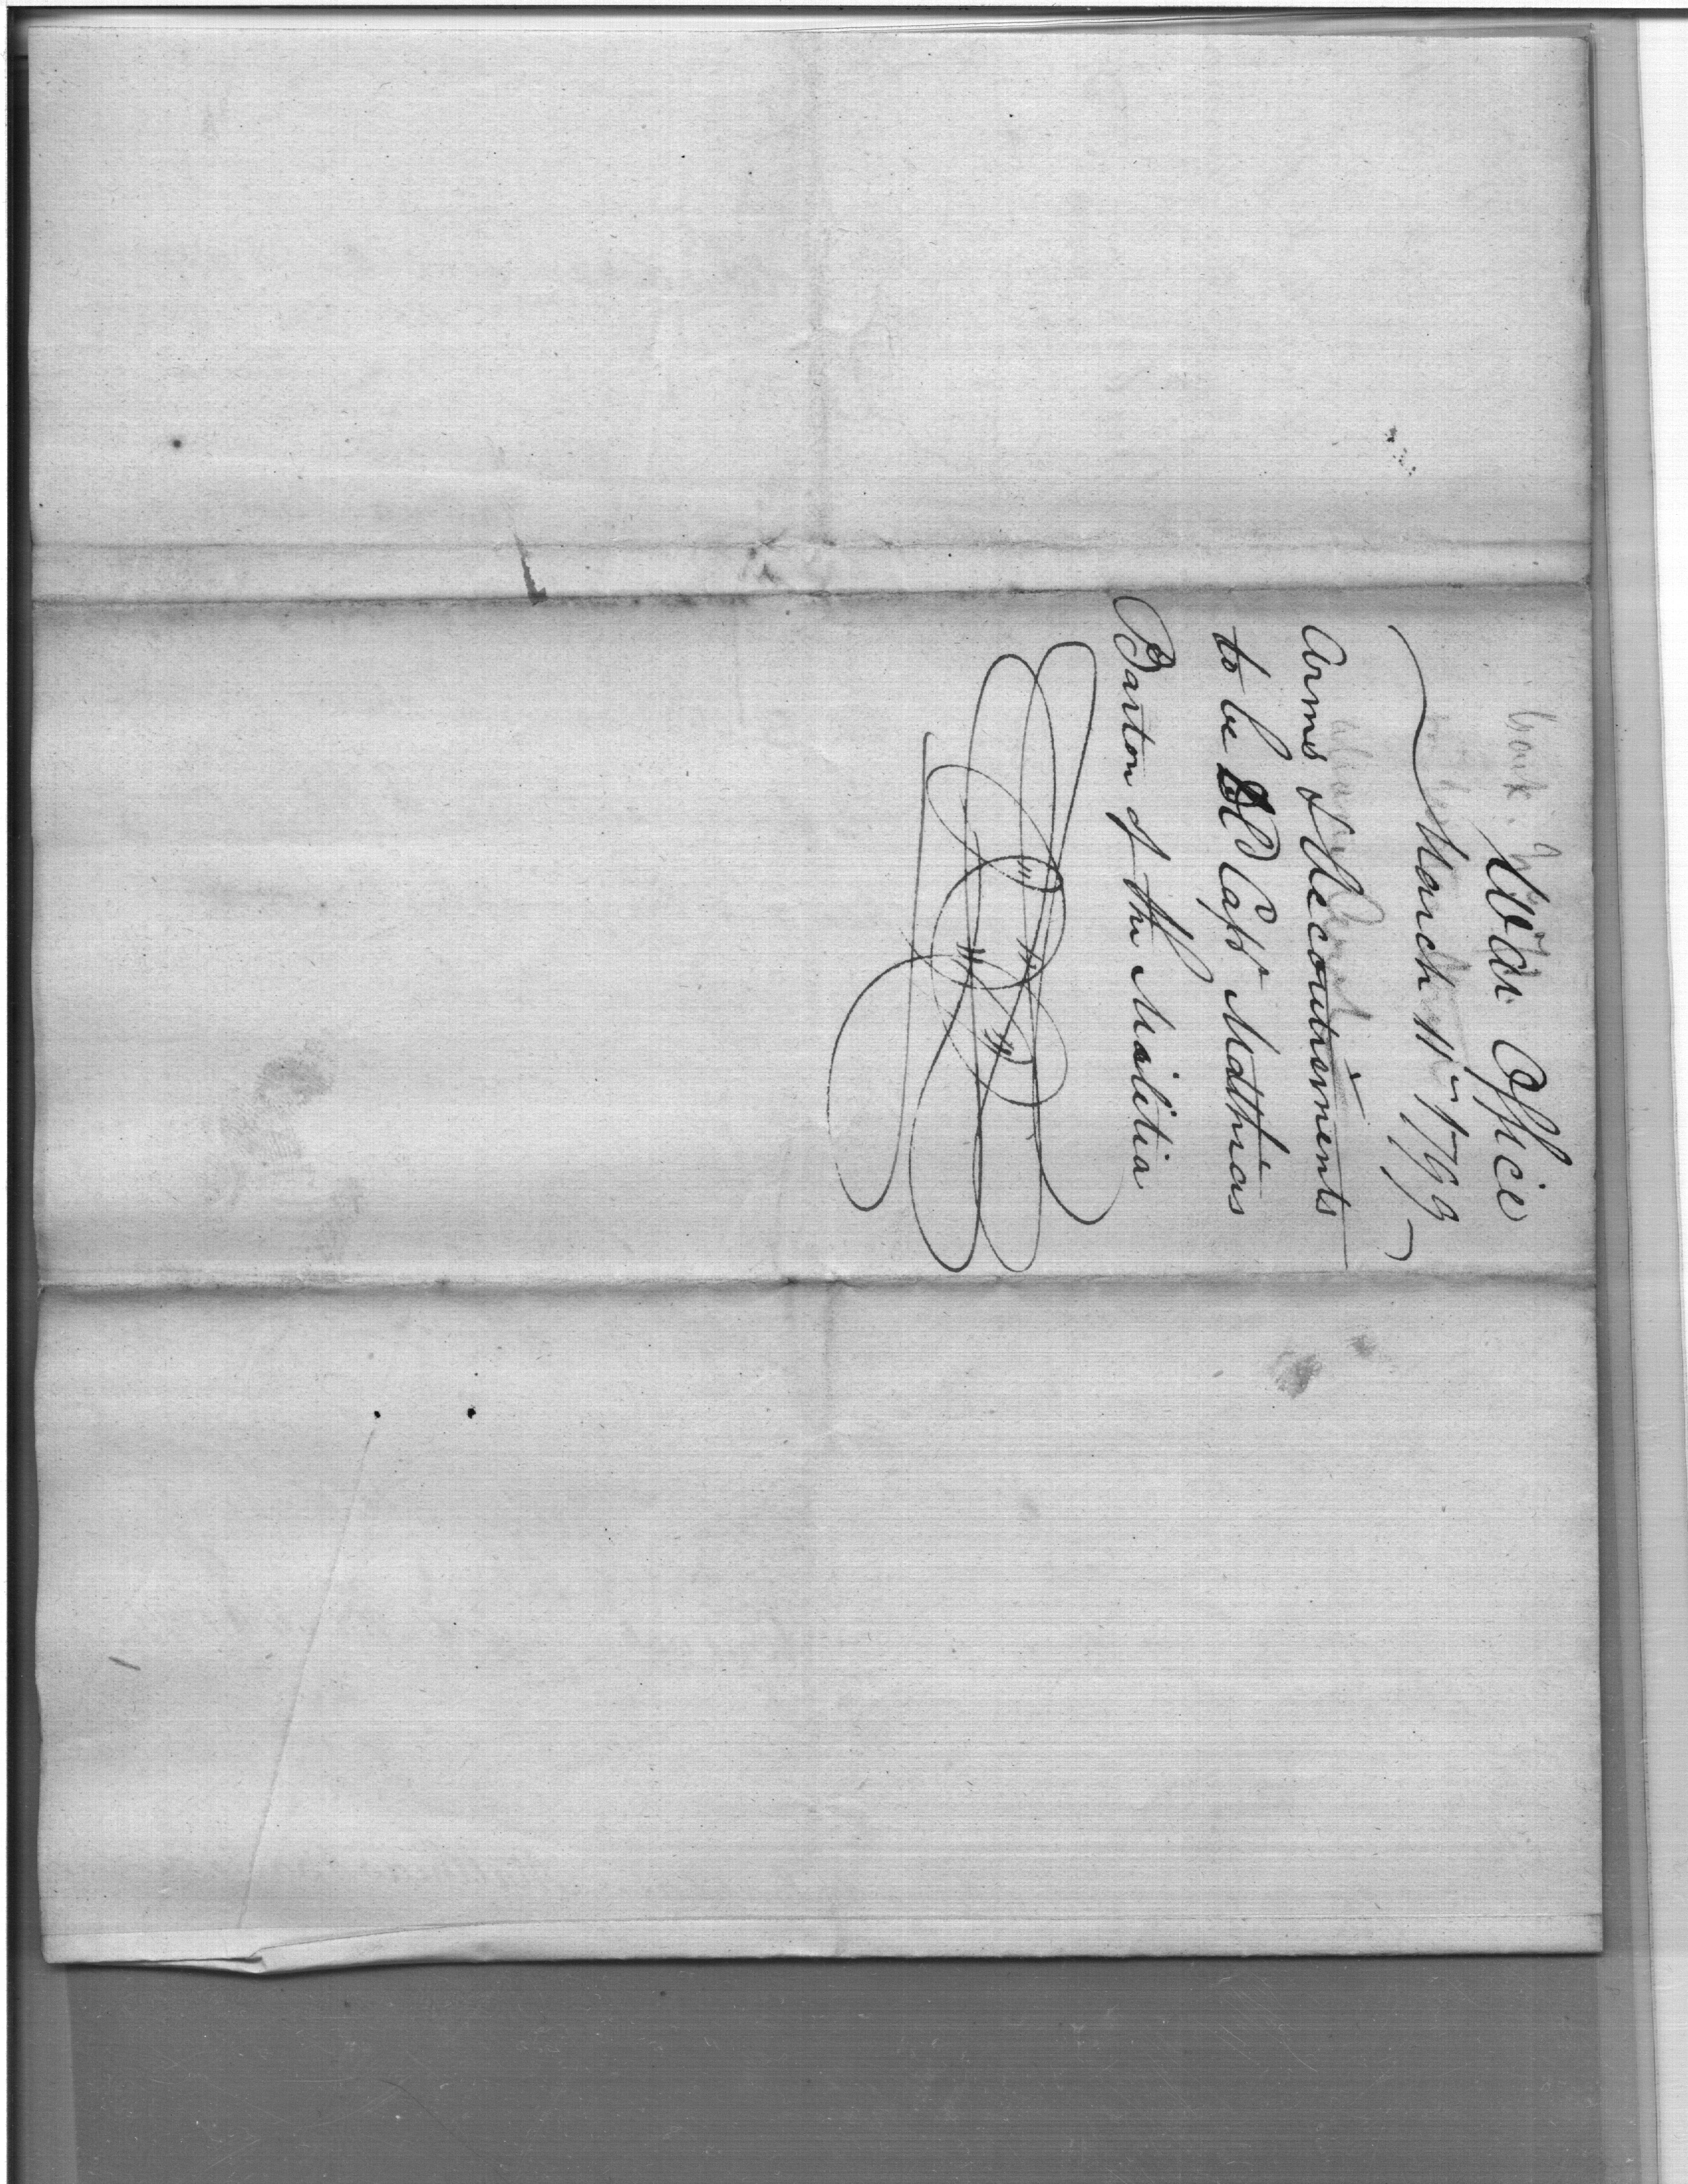 War Office
March 11th 1799
Arms & Accoutrements
to be Capt Matthias
Barton of the Militia